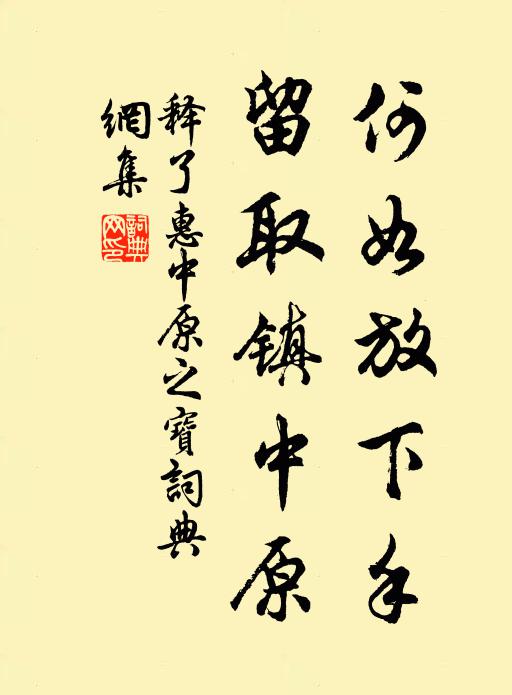 何如放下手
留取镇中原
释了惠中原之寶詞典
網集
詞典
网印